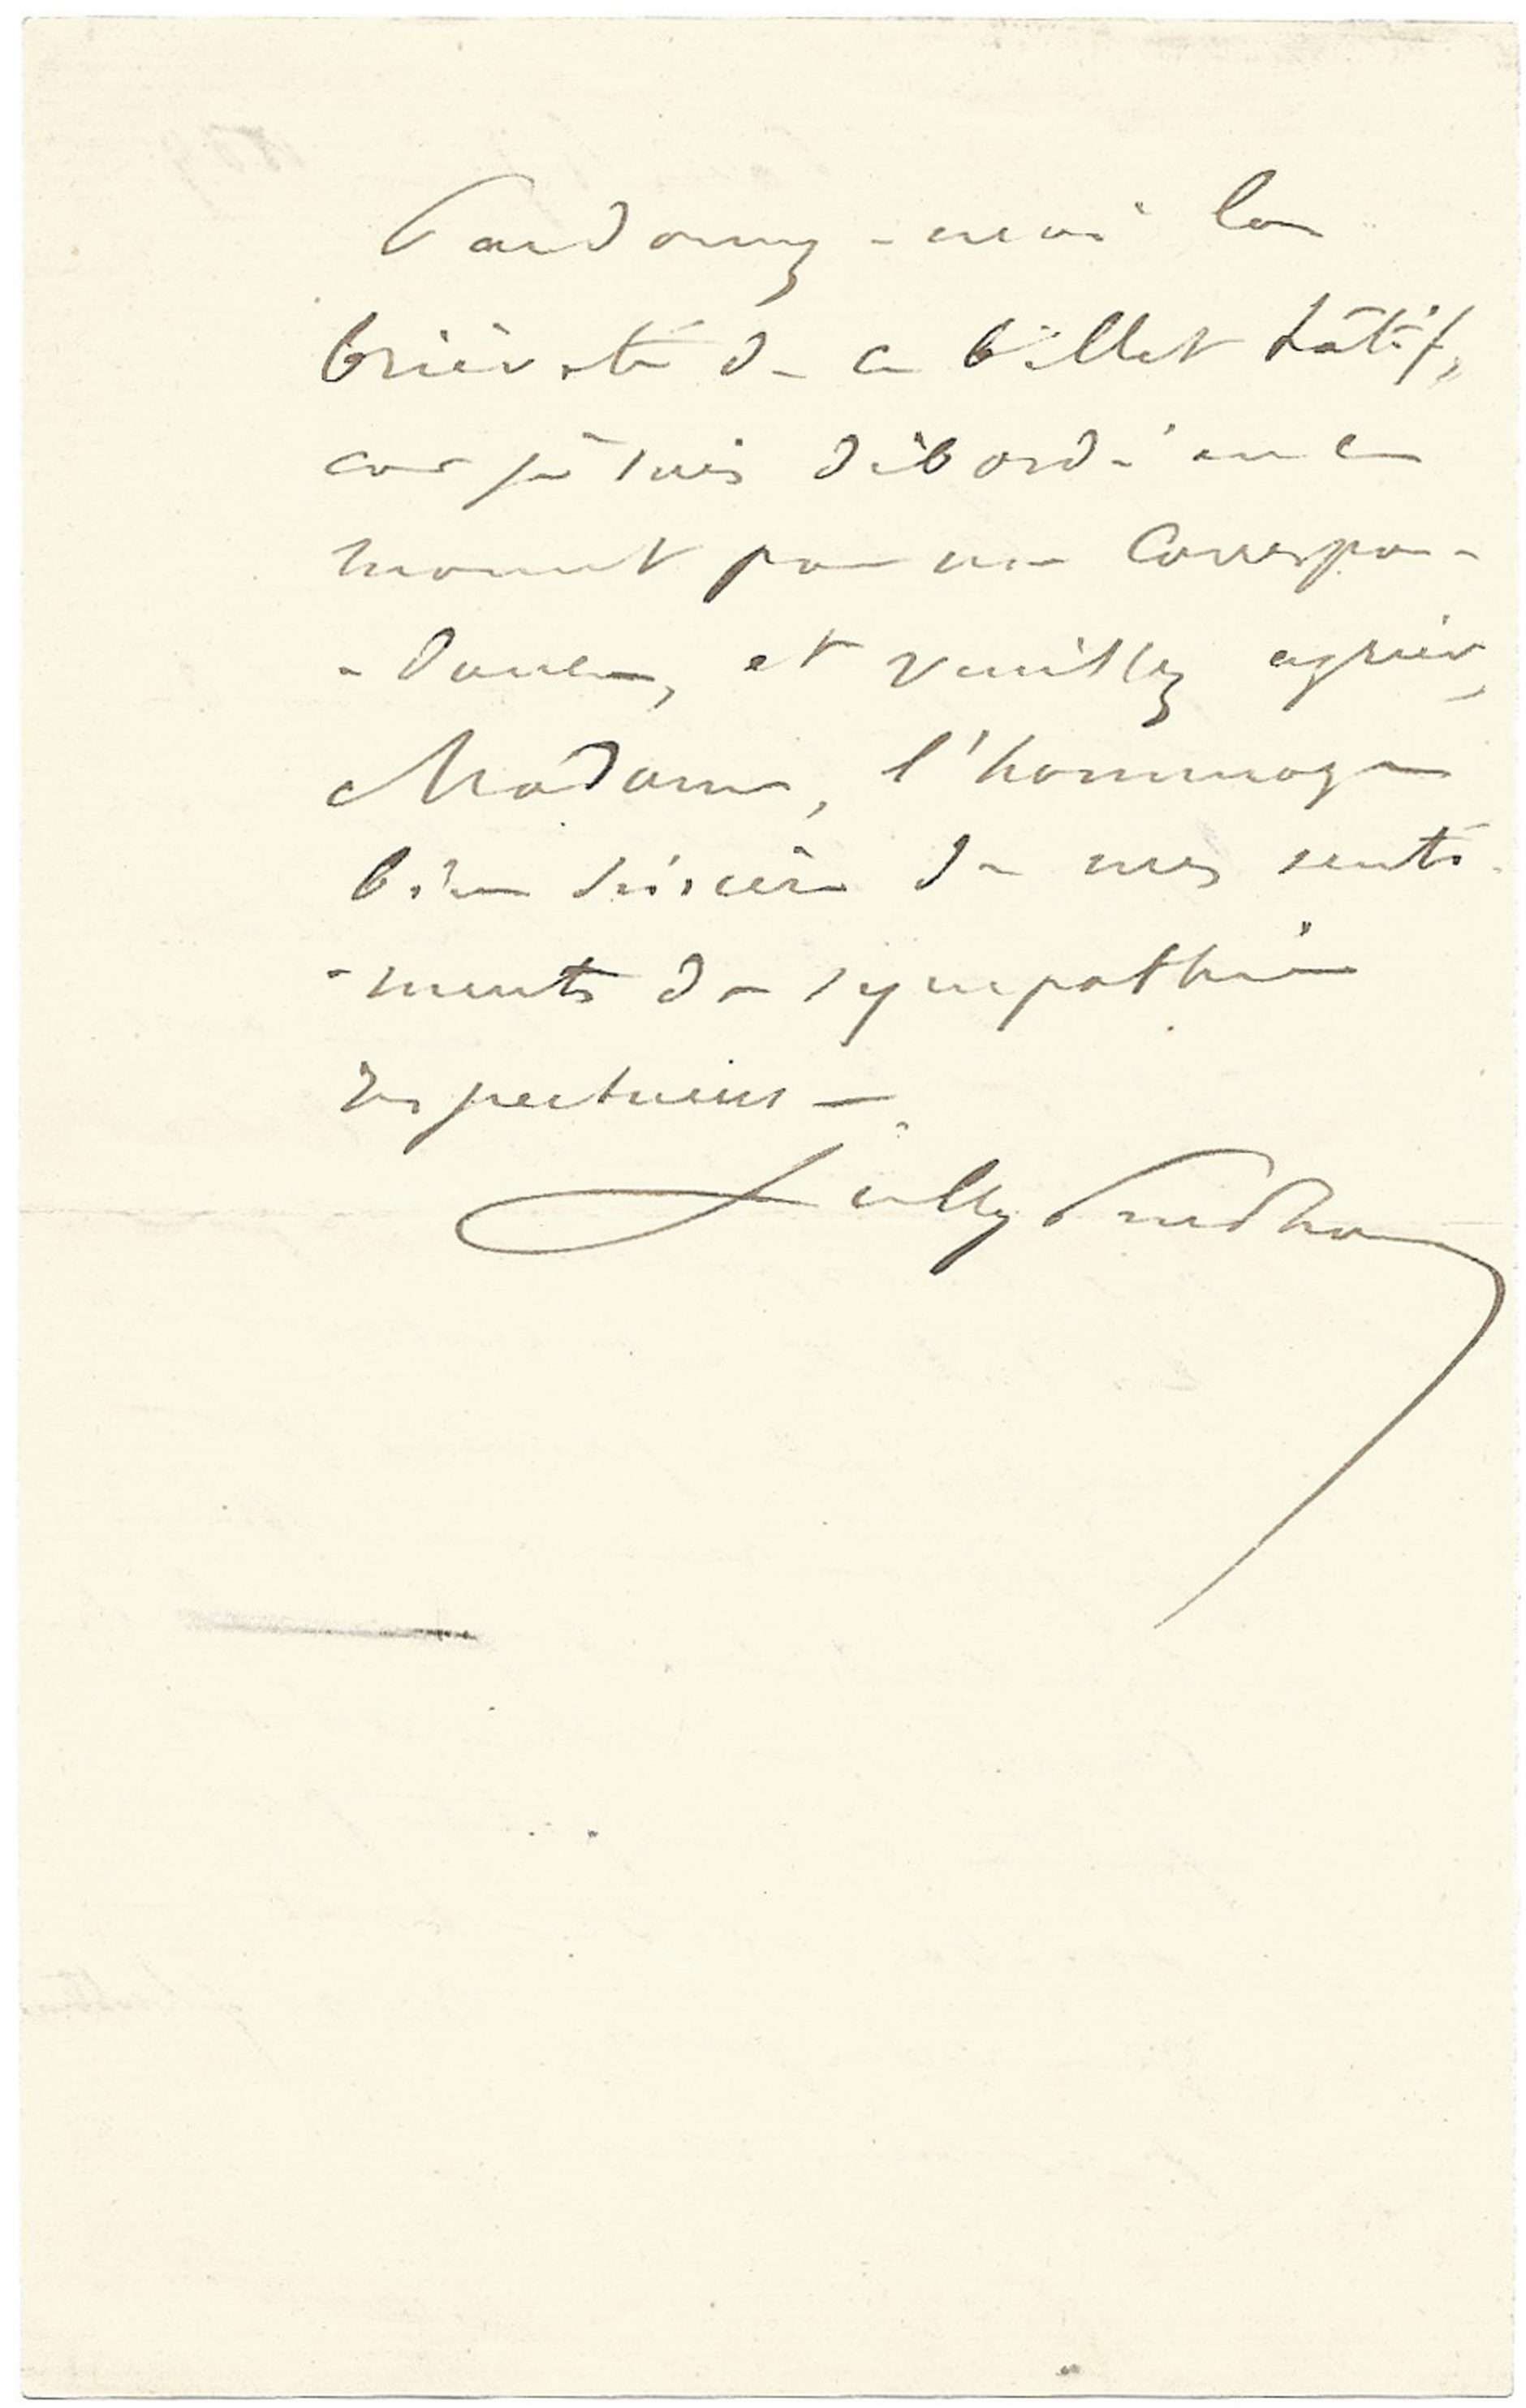 Pardonnez-moi la
brièveté de ce billet hâtif,
car je suis débordé en ce
moment par ma Correspon-
-dance, et veuillez agréer,
Madame, l'hommage
bien sincère de mes senti-
-ments de sympathie
respectueuse.
Sully Prudhomme